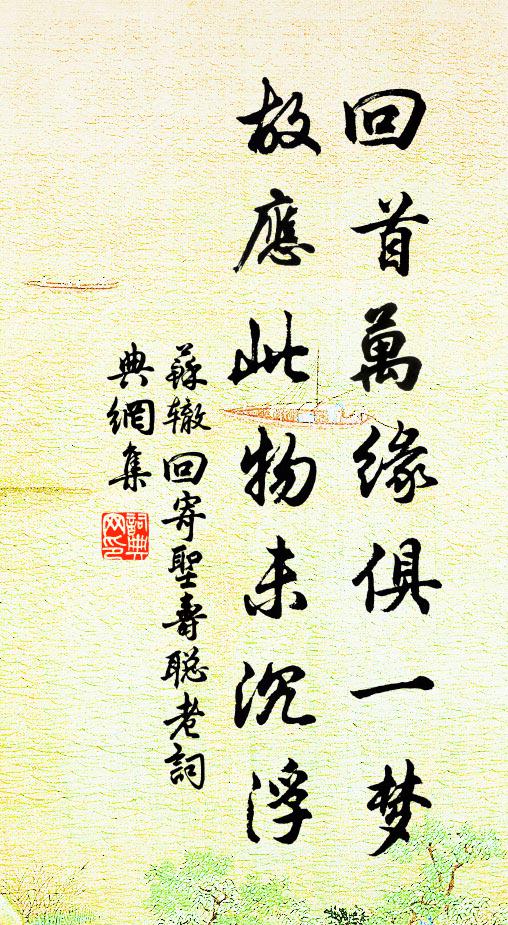 回首萬緣俱一梦
故應此物未沉浮
蘇辙回寄聖壽聪老詞
典網集
詞典
网印